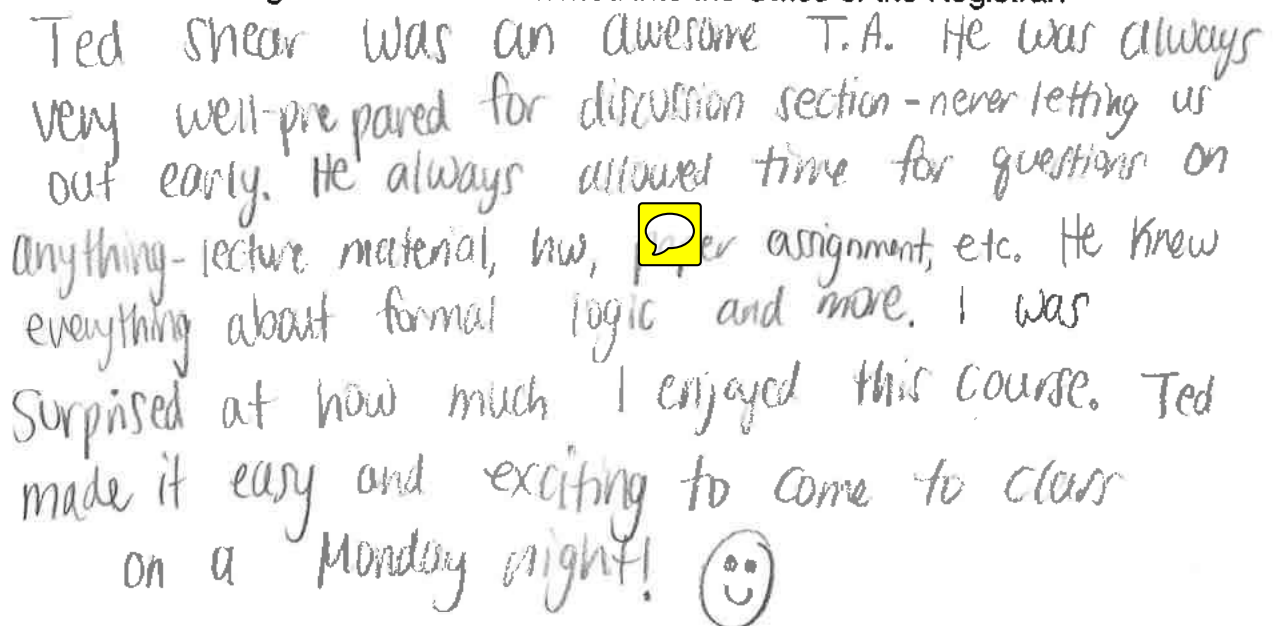 Ted Shear was an awesome T.A. He was always
very well-prepared for discussion section - never letting us
out early. He always allowed time for questions on
anything - lecture material, hw, assignment, etc. He knew
everything about formal logic and more. I was
surprised at how much I enjoyed this course. Ted
made it easy and exciting to come to class
on a Monday night!